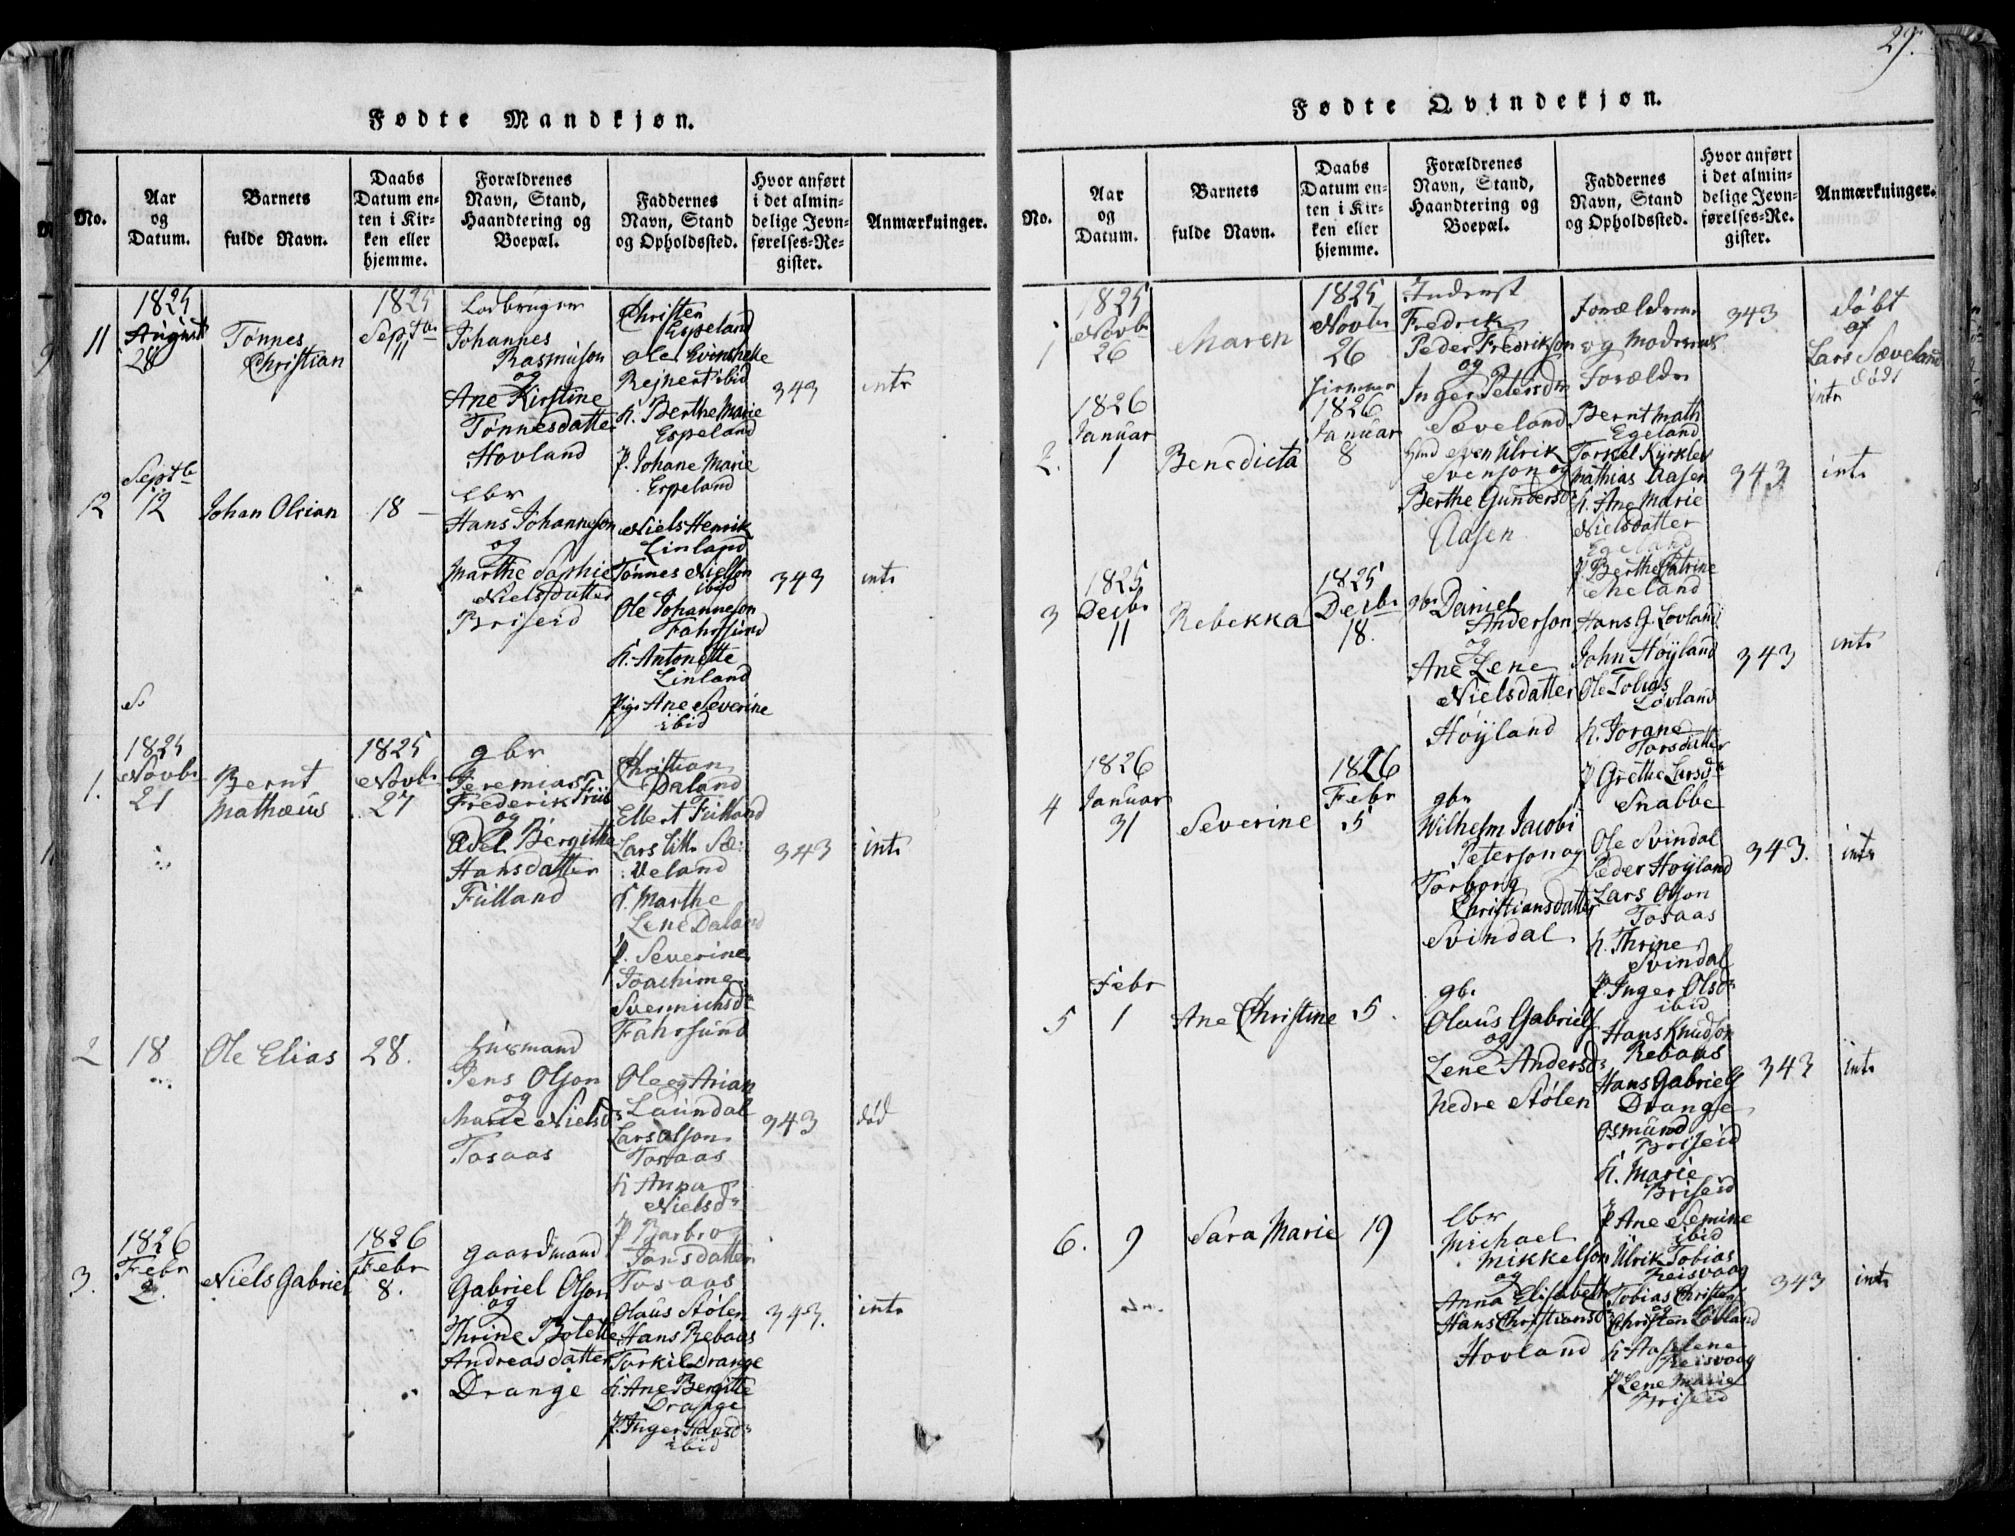 29.
Fødte Mandkjøn.
No.
Aar
og
Datum.
Barnets
fulde Navn.
Daabs
Datum en-
ten i Kir-
ken eller
hjemme.
Forældrenes
Navn, Stand,
Haandtering og
Boepæl.
Faddernes
Navn, Stand
og Opholdssted.
Hvor anført
i det almin-
delige Jevn-
førelses-Re-
gister.
Anmærkninger.
11
1825
August
28
Tønnes
Christian
1825
Septbr
11
Lodbruger
Johannes
Rasmuson
og
Ane Kirstine
Tønnesdatter
Hovland
Christen
Espeland
Ole Evinshelle
Rejnert ibid
K. Berthe Marie
Espeland
P. Johane Marie
Espeland
343
intr
12
Septbr
12
Johan Olrian
18
lbr
Hans Johanneson
og
Marthe Sophie
Nielsdatter
Briseid
Niels Henrik
Linland
Tønnes Nielson
ibid
Ole Johanneson
Fahrsund
K. Antonette
Linland
Pige Ane Severine
ibid
343
intr
S
1.
1825
Novbr
21
Bernt
Mathæus
1825
Novbr
27
gbr
Jeremias
Frederik Friis
og
Adel Bergitte
Hansdatter
Fülland
Christian
Daland
Ellert Fülland
Lars Sæ-
veland
K. Marthe
Lene Daland
P. Severine
Joachime
Fahrsund
343
intr
2
18
Ole Elias
28.
Husmand
Jens Olson
og
Marie Nielsdr
Tosaas
Ole og Arian
Laundal
Lars Olson
Tosaas
K Anna
Nielsdr
P Barbro
Jonsdatter
Tosaas
343
død
3.
1826
Febr
2.
Niels Gabriel
1826
Febr
8.
gaardmand
Gabriel Olson
og
Thrine Bolette
Andreasdatter
Drange
Olaus Stølen
Hans Rebaas
Torkil Drange
K. Ane Bergitte
Drange
P. Inger Hansdr
ibid
343.
intr
Fødte Qvindekjøn.
No.
Aar
og
Datum.
Barnets
fulde Navn.
Daabs
Datum en-
ten i Kir-
ken eller
hjemme.
Forældrenes
Navn, Stand,
Haandtering og
Boepæl.
Faddernes
Navn, Stand
og Opholdssted.
Hvor anført
i det almin-
delige Jevn-
førelses-Re-
gister.
Anmærkninger.
1
1825
Novbr
26
Maren
1825
Novbr
26
hjemme
Inderst
Fredrik
Peder Fredrikson
og
Inger Petersdr
Sæveland
Forældrene
og Moderens
Forældre
343
døbt
af
Lars Sæveland
død
intr
2.
1826
Januar
1
Benedicta
1826
Januar
8
Hmd Sven Ulrik
Svenson og
Berthe Gundersdr
Aasen
Bernt Math
Egeland
Torkel Kjørkleb
Mathias Aasen
K. Ane Marie
Nielsdatter
Egeland
P. Berthe Catrine
Meland
343
intr
3
1825
Decbr
11
Rebekka
1825
Decbr
18.
gbr Daniel
Anderson
og
Ane Lene
Nielsdatter
Høyland
Hans G. Lovland
John Høyland
Ole Tobias
Lovland
K. Jorane
Torsdatter
P Grethe Larsdr
Snabbe
343
intr
4
1826
Januar
31
Severine
1826
Febr
5
gbr
Wilhelm Jacobi
Peterson og
Torborg
Christiansdatter
Svindal
Ole Svindal
Peder Høyland
Lars Olson
Tosaas
K. Thrine
Svindal
P. Inger Olsdr
ibid
343.
intr
5
Febr
1
Ane Christine
5.
gbr
Olaus Gabriels
og
Lene Andersdr
Nedre Stølen
Hans Knudson
Rebaas
Hans Gabriels
Drange
Osmund
Briseid
K. Marie
Briseid
P Ane Semine
ibid
343
intr
6.
9
Sara Marie
19
lbr
Michael
Mikkelson
og
Anna Elisabeth
Hans Christiansdr
Hovland
Ulrik Tobias
Reisvaag
Tobias Christens
og
Christen Lovland
K Aaselene
Reisvaag
P Lene Marie
Briseid
343
intr